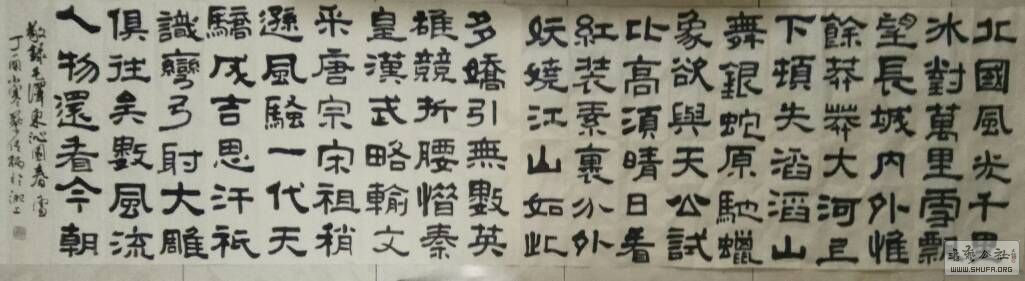 北國風光千里
冰對萬里雪飄
望長城內外惟
餘莽莽大河上
下頓失滔滔山
舞銀蛇原馳蠟
象欲與天公試
比高須晴日看
紅裝素裹分外
妖嬈江山如此
多嬌引無數英
雄競折腰惜秦
皇漢武略輸文
采唐宗宋祖稍
遜風騷一代天
驕成吉思汗祇
識彎弓射大雕
俱往矣數風流
人物還看今朝
敬錄毛澤東沁園春雪
丁酉小寒於湖上
WWW.SHUFA.ORG